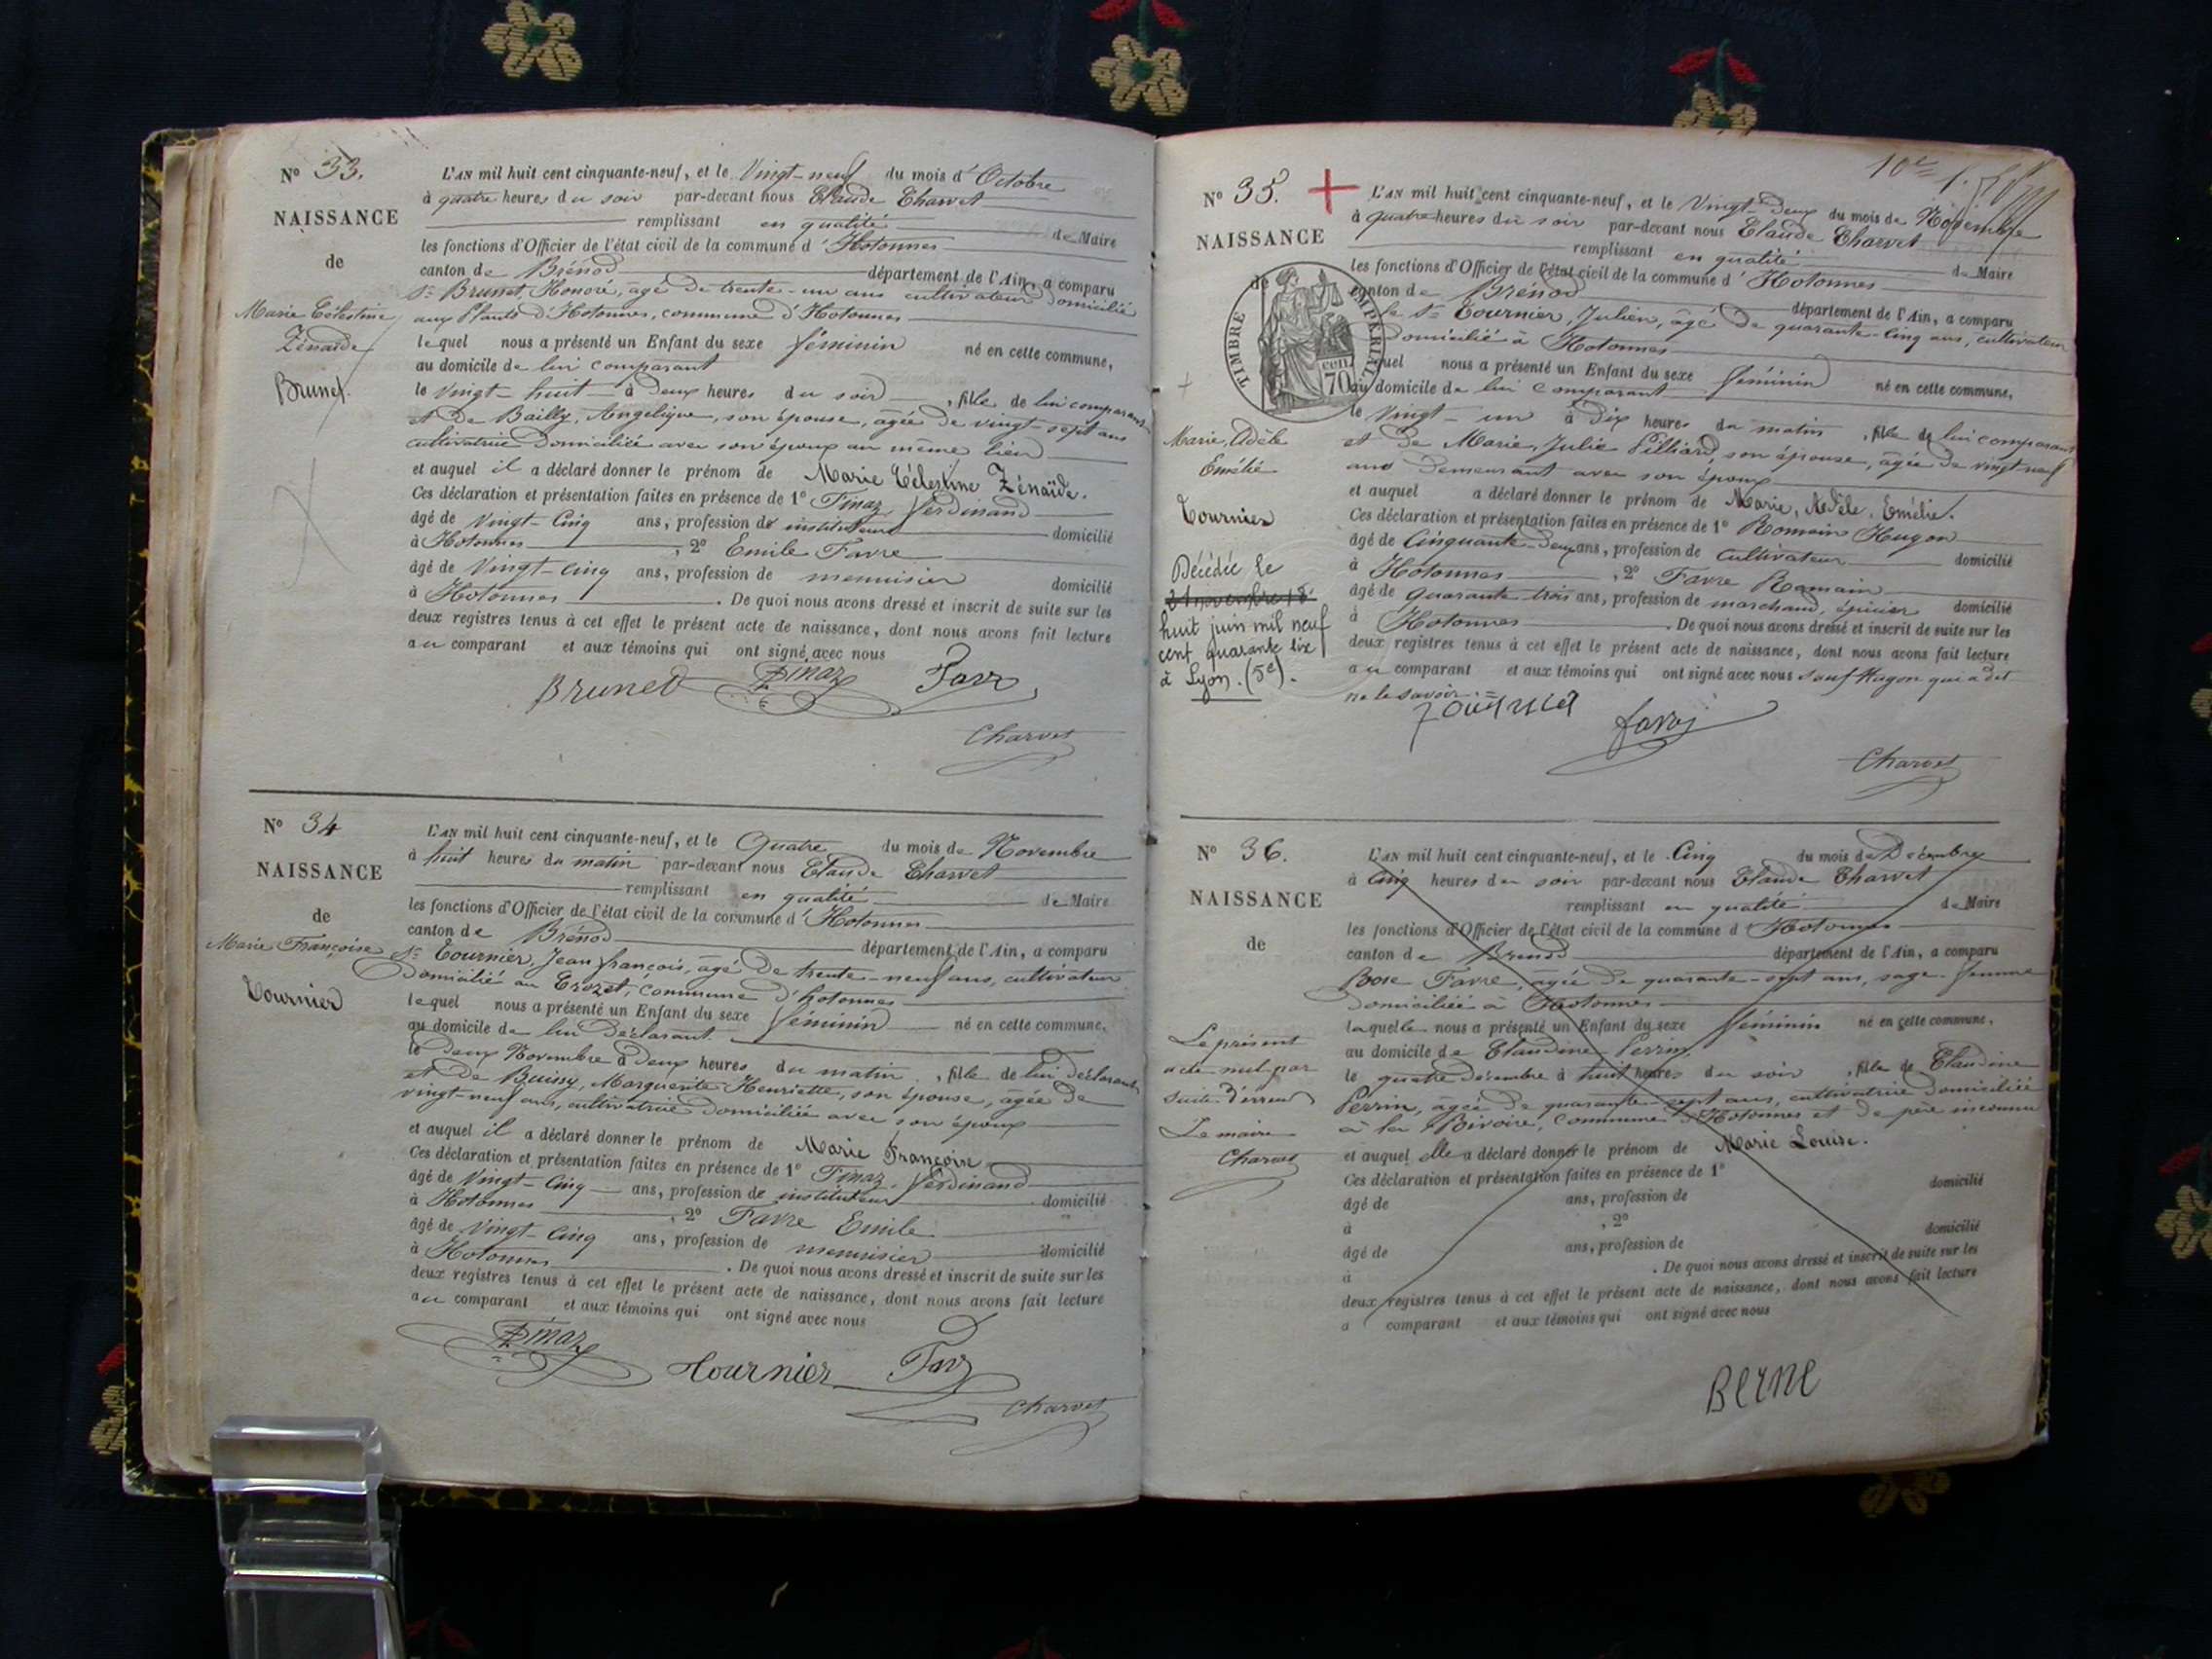 N° 33.
NAISSANCE
de
Marie Célestine
Zénaïde
Brunet.
L'AN mil huit cent cinquante-neuf, et le Vingt-neuf du mois d'Octobre
à quatre heures du soir par-devant nous Claude Charvet
remplissant en qualité de Maire
les fonctions d'Officier de l'état civil de la commune d'Hotonnes
canton de Brénod département de l'Ain, a comparu
Sr Brunet, Honoré, agé de trente-un ans cultivateur domicilié
aux Plans d'Hotonnes, commune d'Hotonnes
lequel nous a présenté un Enfant du sexe féminin né en cette commune,
au domicile de lui comparant
le vingt-huit à deux heures du soir, fille de lui comparant
et de Bailly, Angélique, son épouse, agée de vingt-sept ans
cultivatrice domiciliée avec son époux au même lieu
et auquel il a déclaré donner le prénom de Marie Célestine Zénaïde.
Ces déclaration et présentation faites en présence de 1° Finaz, Ferdinand
âgé de Vingt-Cinq ans, profession de instituteur domicilié
à Hotonnes, 2° Emile Favre
âgé de Vingt-cinq ans, profession de menuisier domicilié
à Hotonnes. De quoi nous avons dressé et inscrit de suite sur les
deux registres tenus à cet effet le présent acte de naissance, dont nous avons fait lecture
au comparant et aux témoins qui ont signé avec nous
Brunet Finaz Favr
Charvet
N° 34
NAISSANCE
de
Marie Françoise
Tournier
L'AN mil huit cent cinquante-neuf, et le Quatre du mois de Novembre
à huit heures du matin par-devant nous Claude Charvet
remplissant en qualité de Maire
les fonctions d'Officier de l'état civil de la commune d'Hotonnes
canton de Brénod département de l'Ain, a comparu
Sr Tournier, Jean françois, âgé de trente-neuf ans, cultivateur
domicilié au Crozet, commune d'hotonnes
lequel nous a présenté un Enfant du sexe féminin né en cette commune,
au domicile de lui déclarant.
le deux Novembre à deux heures du matin, fille de lui déclarant
et de Buissy, Marguerite Henriette, son épouse, agée de
vingt-neuf ans, cultivatrice domiciliée avec son époux
et auquel il a déclaré donner le prénom de Marie Françoise
Ces déclaration et présentation faites en présence de 1° Finaz, Ferdinand
âgé de Vingt-Cinq ans, profession de instituteur domicilié
à Hotonnes, 2° Favre Emile
âgé de Vingt-Cinq ans, profession de menuisier domicilié
à Hotonnes. De quoi nous avons dressé et inscrit de suite sur les
deux registres tenus à cet effet le présent acte de naissance, dont nous avons fait lecture
au comparant et aux témoins qui ont signé avec nous
Finaz Tournier Favr
Charvet
10e
N° 35.
NAISSANCE
de
TIMBRE IMPERIAL
70 cen
Marie, Adèle
Emélie
Tournier
Décédée le
21 novembre 18
huit juin mil neuf
cent quarante six
à Lyon. (5e).
L'AN mil huit cent cinquante-neuf, et le Vingt-Deux du mois de Novembre
à quatre heures du soir par-devant nous Claude Charvet
remplissant en qualité de Maire
les fonctions d'Officier de l'état civil de la commune d'Hotonnes
canton de Brénod département de l'Ain, a comparu
le Sr Tournier, Julien, âgé de quarante-cinq ans, cultivateur
domicilié à Hotonnes
lequel nous a présenté un Enfant du sexe féminin né en cette commune,
au domicile de lui comparant
le Vingt-un à dix heures du matin, fille de lui comparant
et de Marie, Julie Pilliard, son épouse, âgée de vingt-neuf
ans demeurant avec son époux
et auquel a déclaré donner le prénom de Marie, Adèle, Emélie.
Ces déclaration et présentation faites en présence de 1° Romain Hugon
âgé de Cinquante-Deux ans, profession de Cultivateur domicilié
à Hotonnes, 2° Favre Romain
âgé de quarante trois ans, profession de marchand, épicier domicilié
à Hotonnes. De quoi nous avons dressé et inscrit de suite sur les
deux registres tenus à cet effet le présent acte de naissance, dont nous avons fait lecture
au comparant et aux témoins qui ont signé avec nous sauf Hugon qui a dit
ne le savoir.
Tournier favre
Charvet
N° 36.
NAISSANCE
de
Le présent
acte nul par
suite d'erreur
Le maire
Charvet
L'AN mil huit cent cinquante-neuf, et le Cinq du mois de Décembre
à Cinq heures du soir par-devant nous Claude Charvet
remplissant en qualité de Maire
les fonctions d'Officier de l'état civil de la commune d'Hotonnes
canton de Brenod département de l'Ain, a comparu
Rose Favre, agée de quarante-sept ans, sage-femme
domiciliée à Hotonnes
laquelle nous a présenté un Enfant du sexe féminin né en cette commune,
au domicile de Claudine Perrin.
le quatre décembre à huit heures du soir, fille de Claudine
Perrin, âgée de quarante-sept ans, cultivatrice domiciliée
à la Rivoire, commune d'Hotonnes et de père inconnu
et auquel elle a déclaré donner le prénom de Marie Louise.
Ces déclaration et présentation faites en présence de 1°
âgé de ans, profession de domicilié
à , 2°
âgé de ans, profession de domicilié
à . De quoi nous avons dressé et inscrit de suite sur les
deux registres tenus à cet effet le présent acte de naissance, dont nous avons fait lecture
a comparant et aux témoins qui ont signé avec nous
Berne